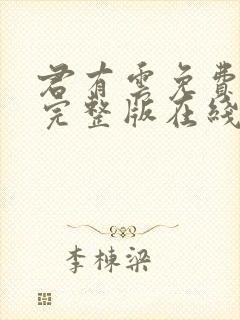 君有云免费
完整版在线
李栋梁